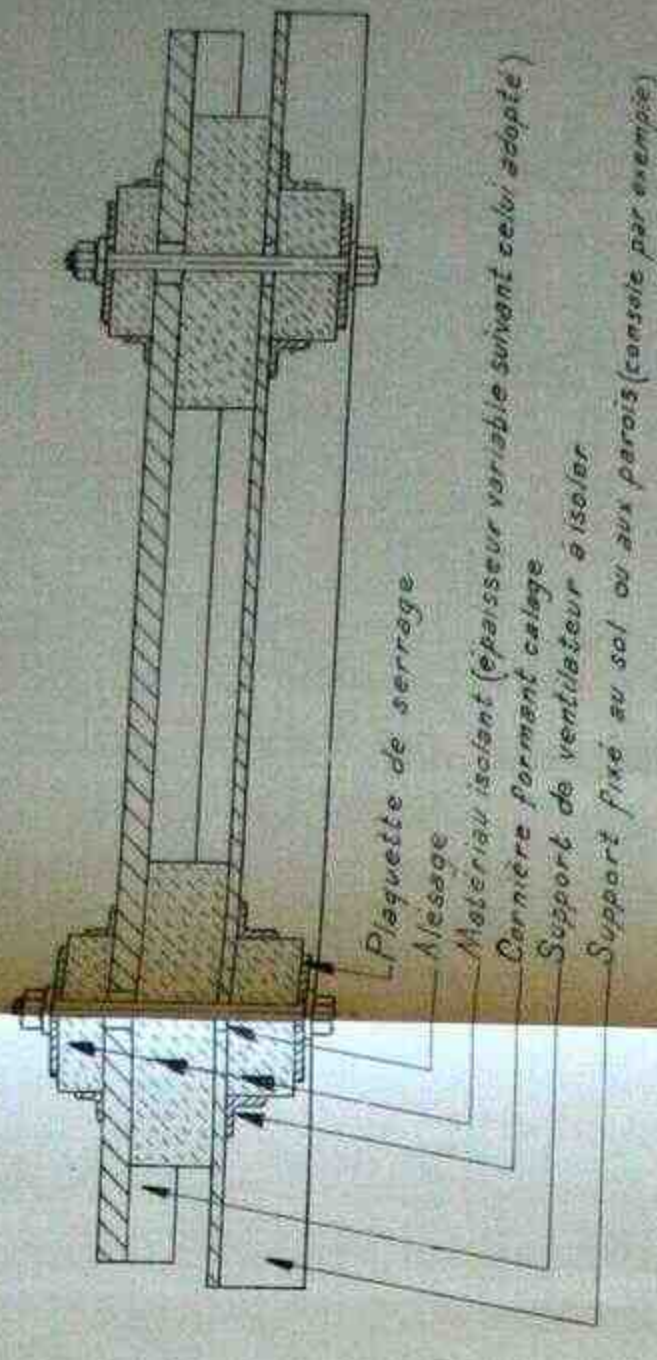 Plaquette de serrage
Alésage
Matériau isolant (épaisseur variable suivant celui adopté)
Cornière formant calage
Support de ventilateur à isoler
Support fixé au sol ou aux parois (console par exemple)